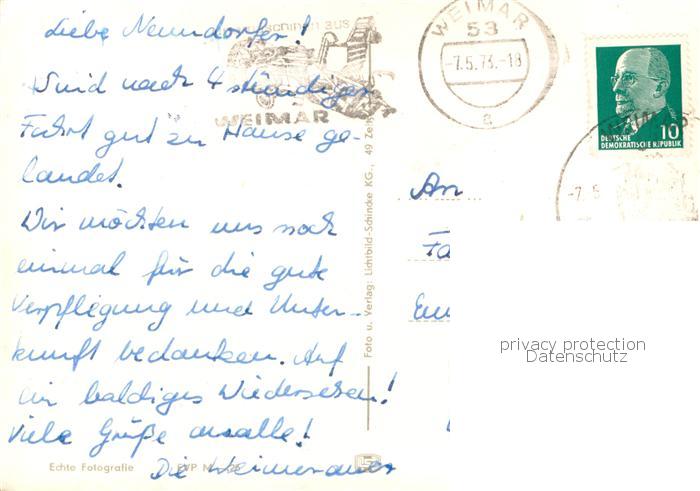 Liebe Neundorfer!
Sind nach 4 stündiger
Fahrt gut zu Hause ge-
landet.
Wir möchten uns noch
einmal für die gute
Verpflegung und Unter-
kunft bedanken. Auf
ein baldiges Wiedersehen!
Viele Grüße an alle!
Die Weimeraner
Echte Fotografie
EVP
Foto u. Verlag: Lichtbild-Schincke KG., 49 Zeitz
AUS
WEIMAR
WEIMAR
53
-7.5.73.-18
a
10
DEUTSCHE
DEMOKRATISCHE REPUBLIK
-7. 5
An
Fa
privacy protection
Datenschutz